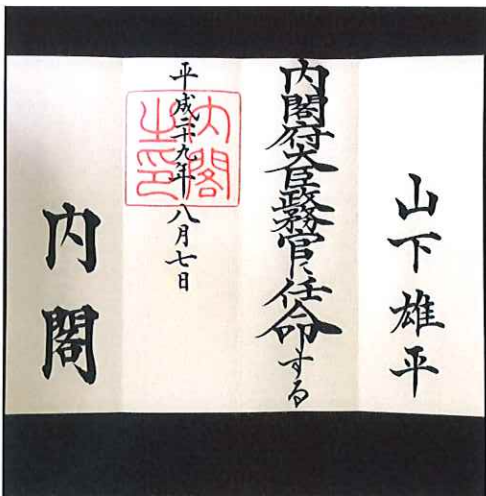 山下雄平
内閣府大臣政務官に任命する
平成二十九年八月七日
内閣之印
内閣